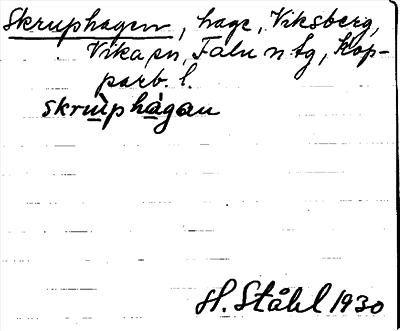 Skruphagen, hage, Viksberg,
Vika sn, Falu n tg, Kop-
parb. l.
skruὶphàgan
H. Ståhl 1930